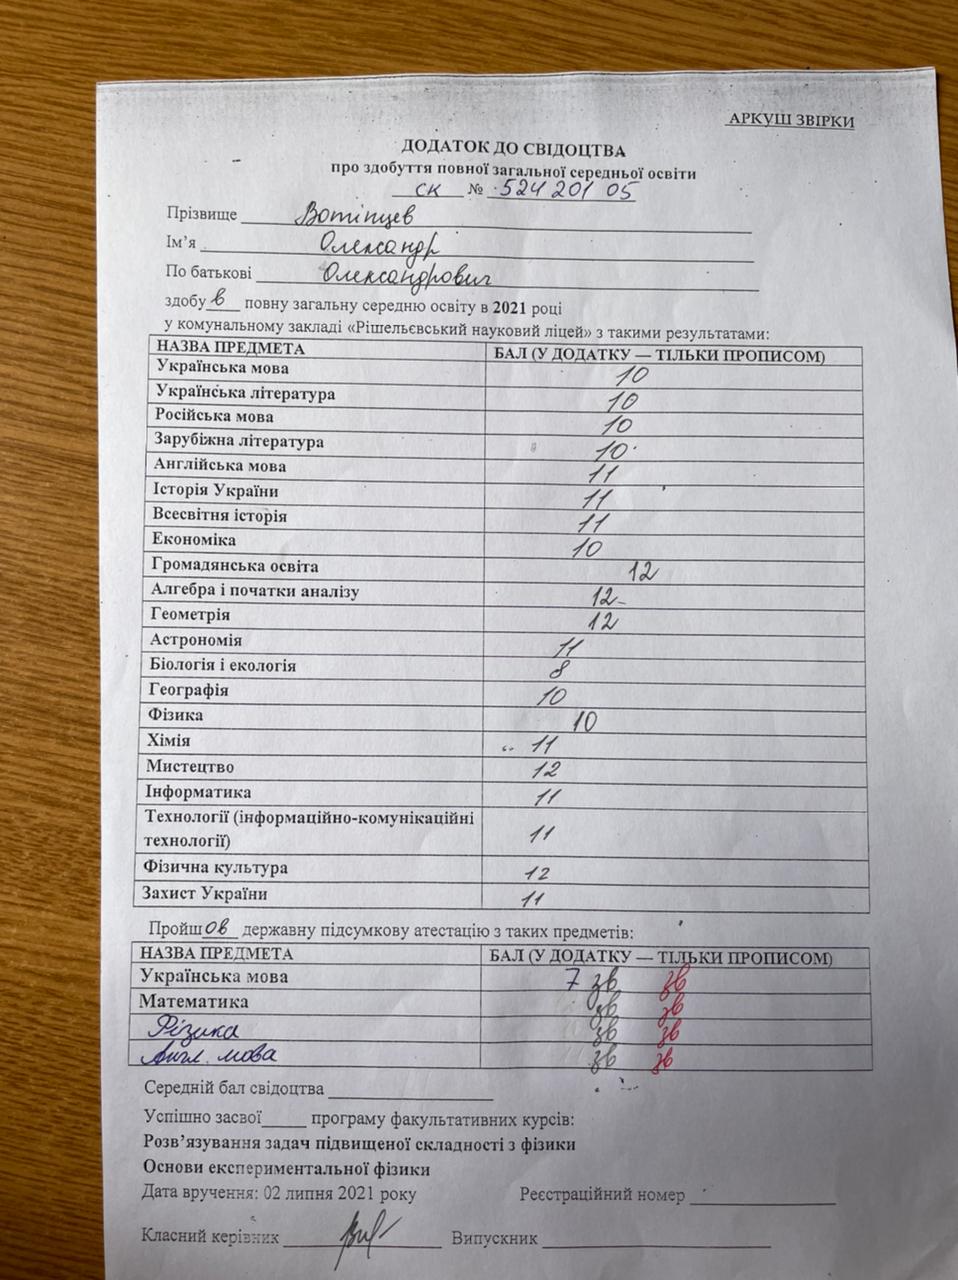 АРКУШ ЗВІРКИ
ДОДАТОК ДО СВІДОЦТВА
про здобуття повної загальної середньої освіти
СК № 524 201 05
Прізвище Вотінцев
Ім’я Олександр
По батькові Олександрович
здобув повну загальну середню освіту в 2021 році
у комунальному закладі «Рішельєвський науковий ліцей» з такими результатами:
НАЗВА ПРЕДМЕТА БАЛ (У ДОДАТКУ — ТІЛЬКИ ПРОПИСОМ)
Українська мова 10
Українська література 10
Російська мова 10
Зарубіжна література 10
Англійська мова 11
Історія України 11
Всесвітня історія 11
Економіка 10
Громадянська освіта 12
Алгебра і початки аналізу 12
Геометрія 12
Астрономія 11
Біологія і екологія 8
Географія 10
Фізика 10
Хімія 11
Мистецтво 12
Інформатика 11
Технології (інформаційно-комунікаційні
технології) 11
Фізична культура 12
Захист України 11
Пройшов державну підсумкову атестацію з таких предметів:
НАЗВА ПРЕДМЕТА БАЛ (У ДОДАТКУ — ТІЛЬКИ ПРОПИСОМ)
Українська мова 7 зв зв
Математика зв зв
Фізика зв зв
Англ. мова зв зв
Середній бал свідоцтва
Успішно засвої____ програму факультативних курсів:
Розв’язування задач підвищеної складності з фізики
Основи експериментальної фізики
Дата вручення: 02 липня 2021 року Реєстраційний номер
Класний керівник Випускник